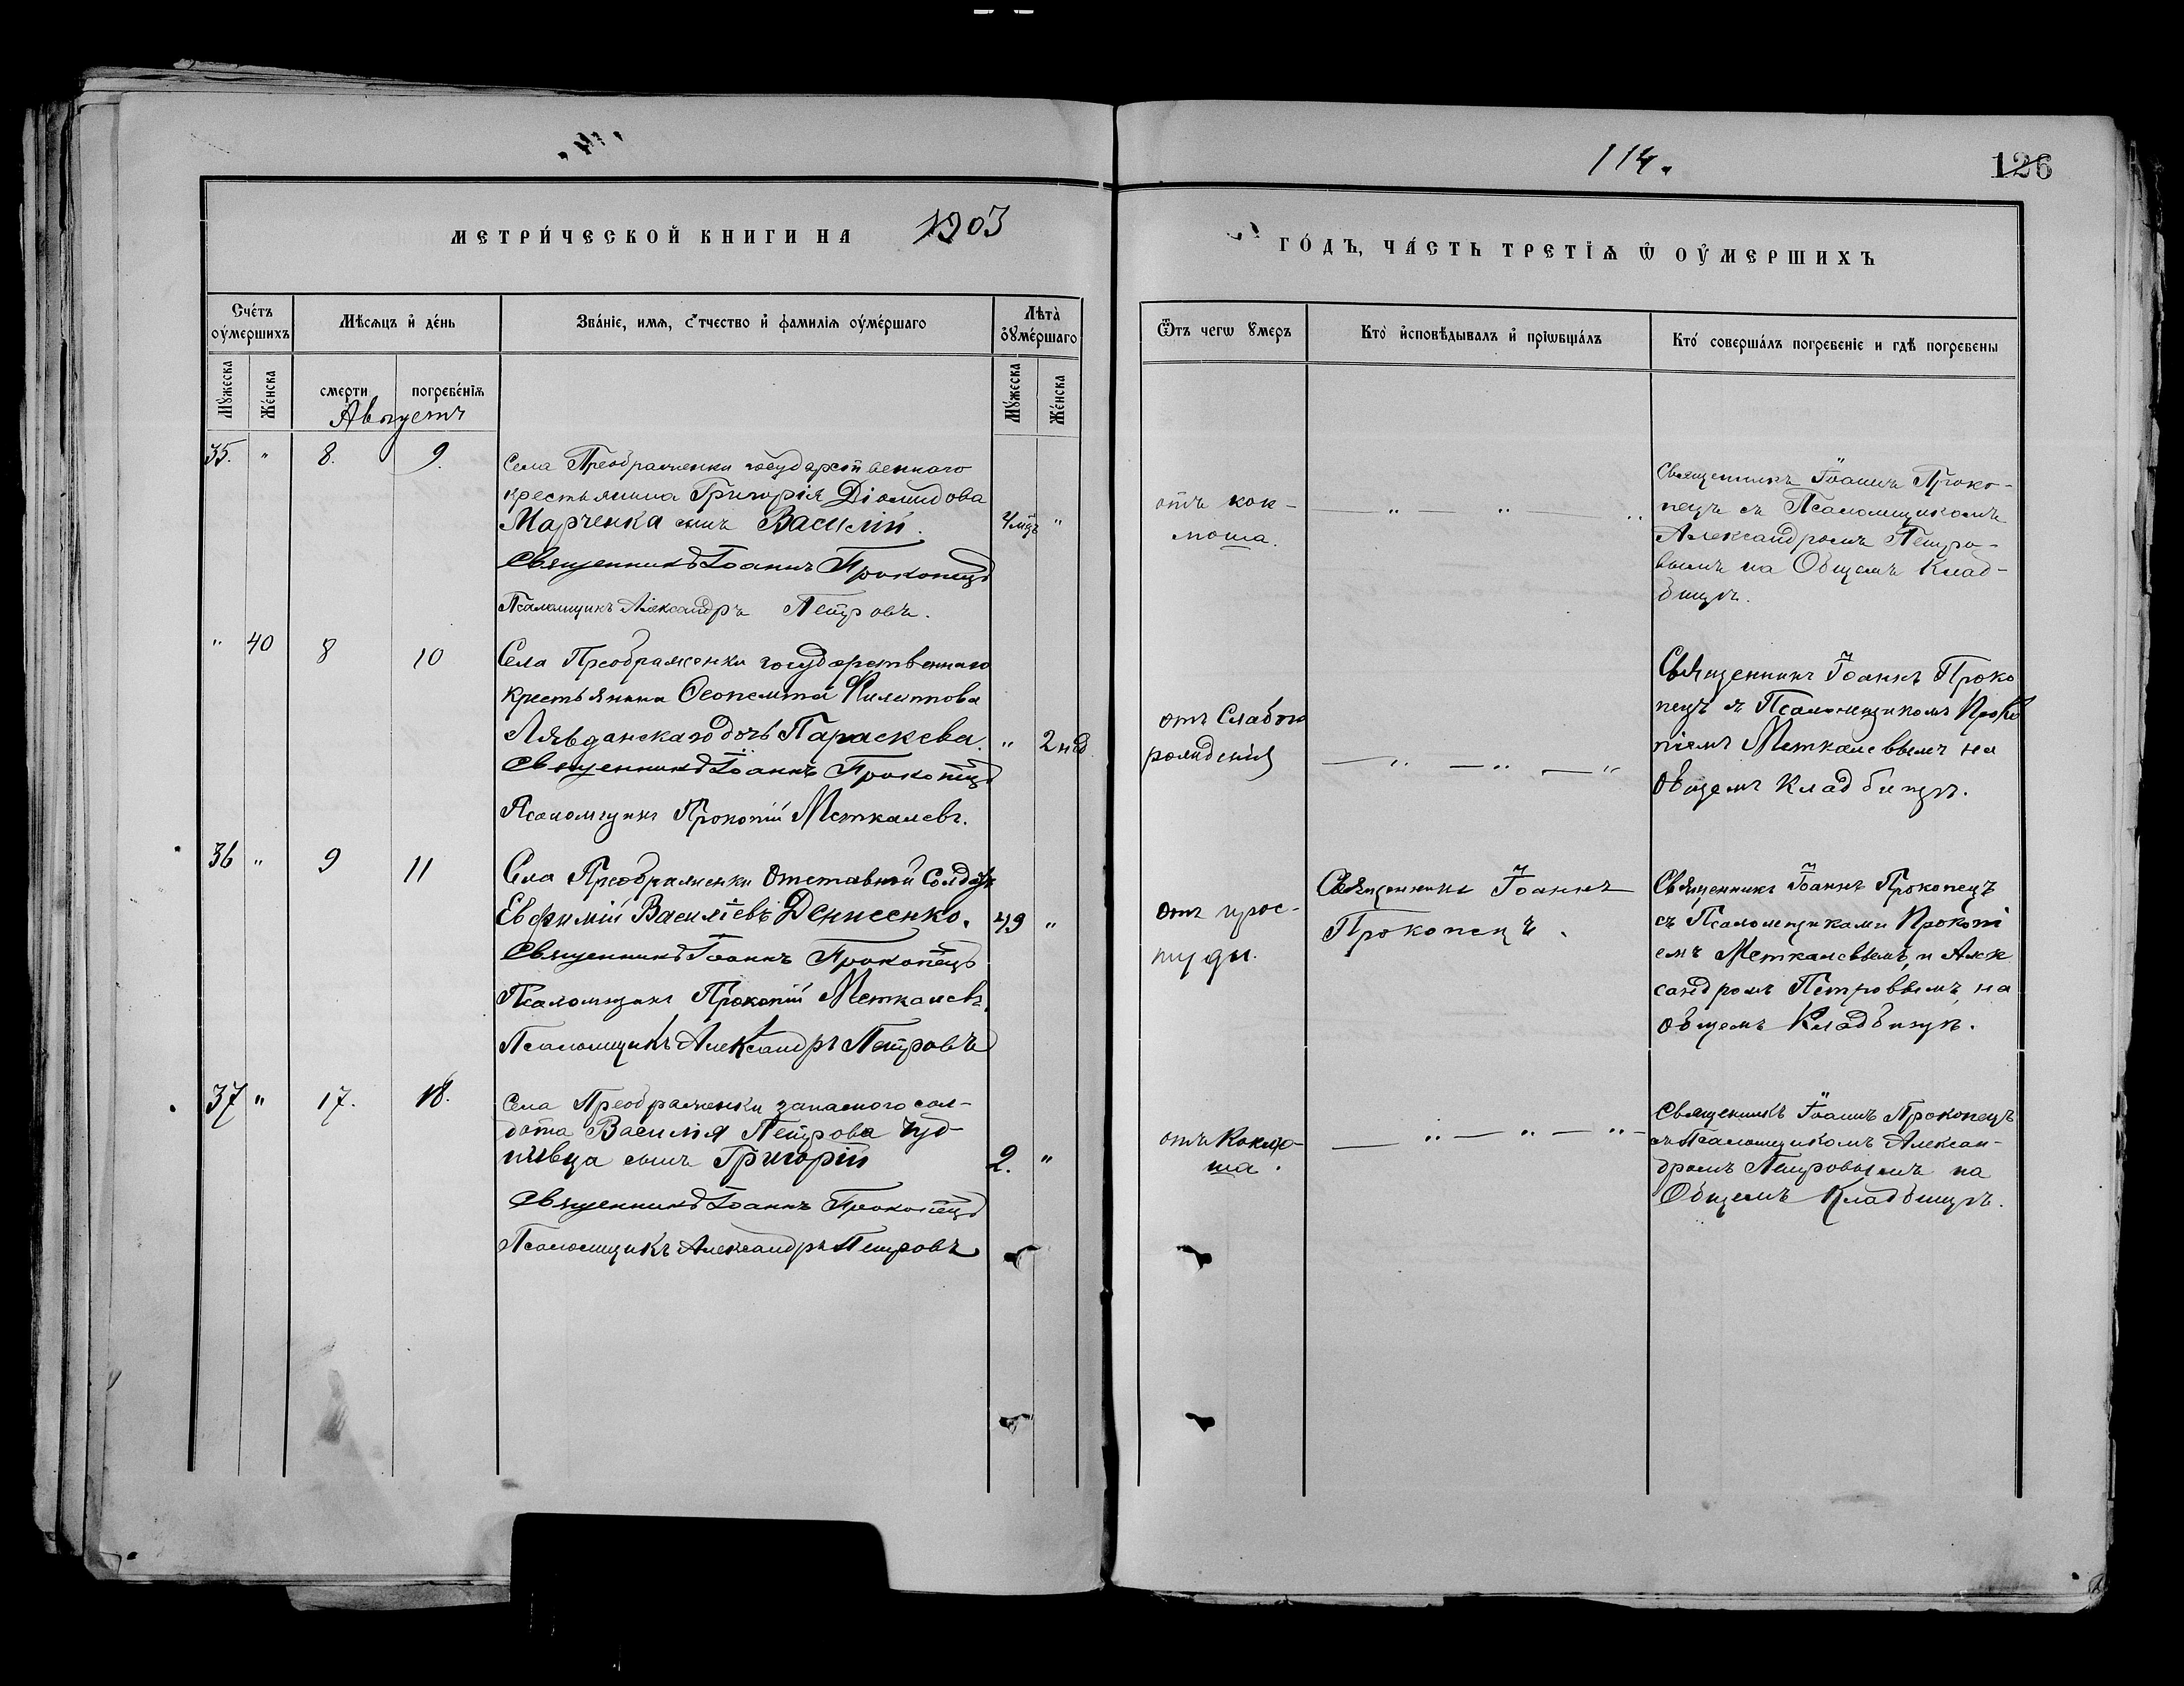 114.
126
МЕТРИ́ЧЕСКОЙ КНИГИ НА 1903
ГО́ДЪ, ЧА́СТЬ ТРЕТІѦ Ѿ ОУ҆МЕРШИХЪ
Сче́тъ оу҆ме́ршихъ
Мѣсѧцъ и҆ де́нь
Зва́ніе, имѧ, ѻтчество и҆ фамилія оу҆ме́ршаго
Лѣта̀ ᲂу҆ме́ршаго
Ѿтъ чегѡ ꙋмеръ
Кто̀ и҆сповѣдывалъ и҆ прїѡбща́лъ
Кто̀ соверша́лъ погребеніе и гдѣ̀ погребены
Мꙋ́жеска
Же́нска
смерти
погребе́нїѧ
Мꙋ́жеска
Же́нска
Августъ
35. " 8. 9.
Села Преображенки государственнаго
крестьянина Григорія Діомидова
Марченка сынъ Василій.
4 мц. "
Священникъ Іоаннъ Прокопецъ
Псаломщикъ Александръ Петровъ.
отъ кок-
люша.
— " — " — "
Священникъ Іоаннъ Проко-
пецъ съ Псаломщикомъ
Александромъ Петро-
вымъ на Общемъ Клад-
бищѣ.
" 40 8 10
Села Преображенки государственнаго
крестьянина Ѳеопемпта Филиппова
дочь Параскева.
" 2 нед
Священникъ Іоаннъ Прокопецъ
Псаломщикъ Прокопій Меткалевъ.
отъ Слабого
рожденія
— " — " — "
Священникъ Іоаннъ Проко
пецъ съ Псаломщикомъ Проко
піемъ Меткалевымъ на
общемъ Кладбищѣ.
36 " 9 11
Села Преображенки Отставной Солдатъ
Евфимій Василіевъ Денисенко.
49 "
Священникъ Іоаннъ Прокопецъ
Псаломщикъ Прокопій Меткалевъ.
Псаломщикъ Александръ Петровъ
Отъ прос-
туды.
Священникъ Іоаннъ
Прокопецъ.
Священникъ Іоаннъ Прокопецъ
съ Псаломщиками Прокопі
емъ Меткалевымъ и Алек
сандромъ Петровымъ на
общемъ Кладбищѣ.
37 " 17. 18.
Села Преображенки запасного сол-
дата Василія Петрова Чуд-
нивца сынъ Григорій
2. "
Священникъ Іоаннъ Прокопецъ
Псаломщикъ Александръ Петровъ
отъ Коклю-
ша.
— " — " — " —
Священникъ Іоаннъ Прокопецъ
съ Псаломщикомъ Алексан-
дромъ Петровымъ на
Общемъ Кладбищѣ.